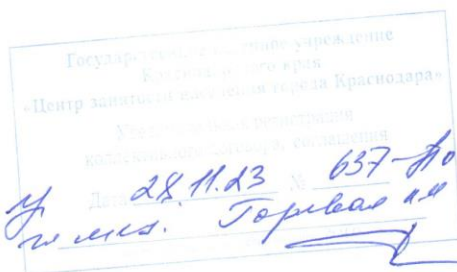 Государственное казенное учреждение
Краснодарского края
«Центр занятости населения города Краснодара»
Уведомительная регистрация
коллективного договора, соглашения
Дата 28.11.23 № 637-